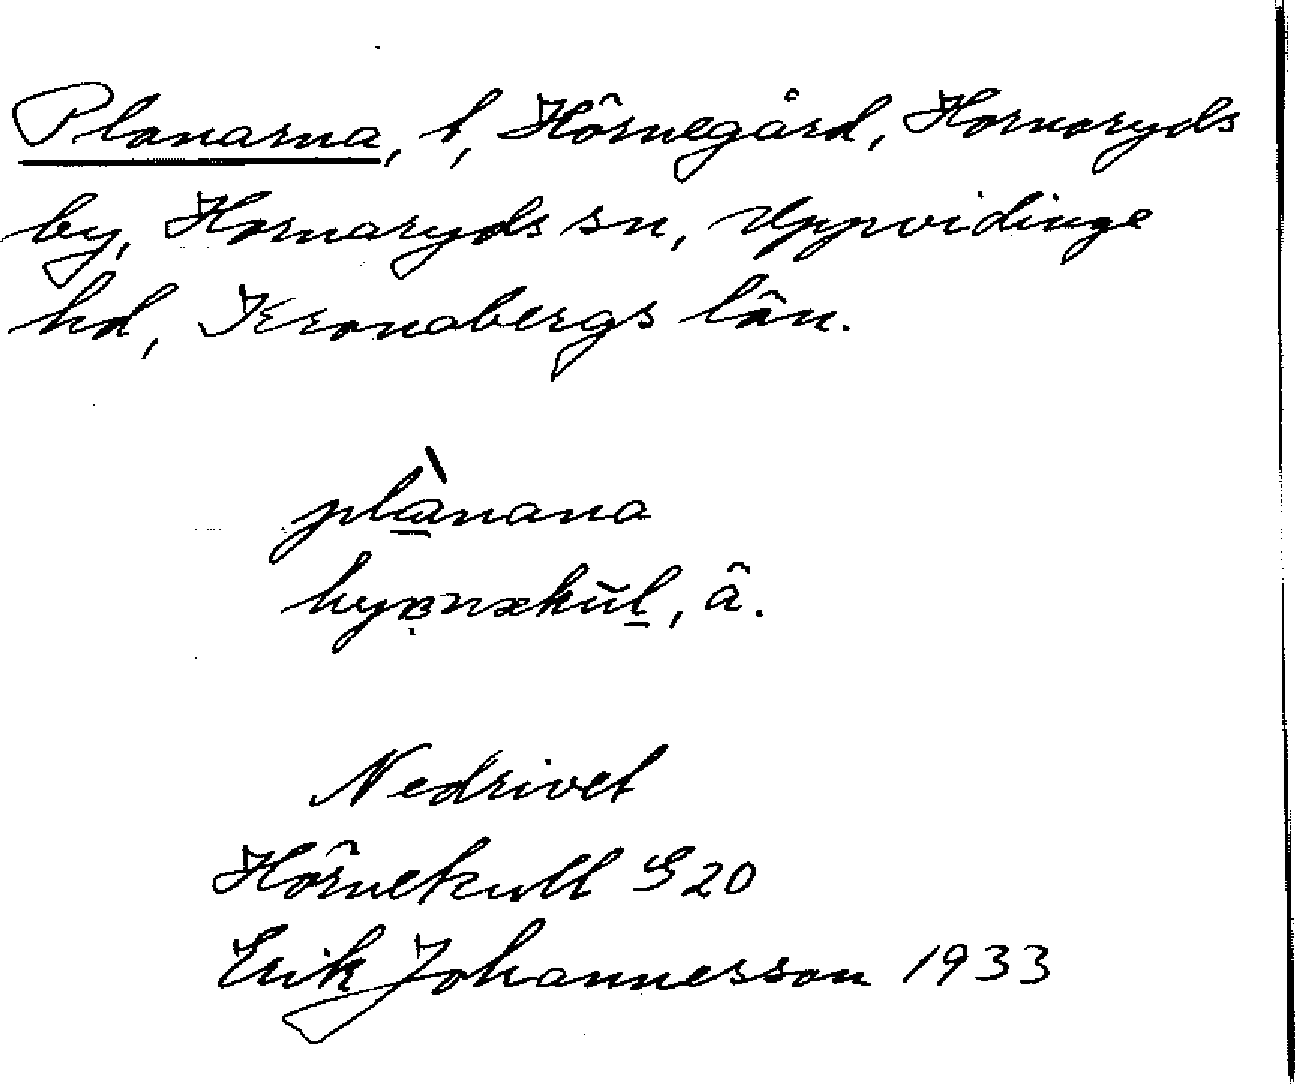 Planarna, t, Hörnegård, Hornaryds
by, Hornaryds sn, Uppvidinge
hd, Kronobergs län.
plànana
, ä.
Nedrivet
Hörnekull S 20
Erik Johannesson 1933